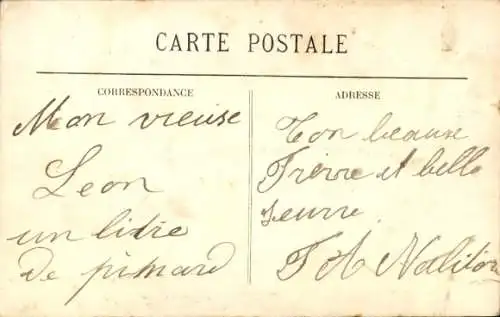 CARTE POSTALE
CORRESPONDANCE
Mon vieuse
Leon
un litre
de pinard
ADRESSE
Ton beause
Frerre et belle
seurre